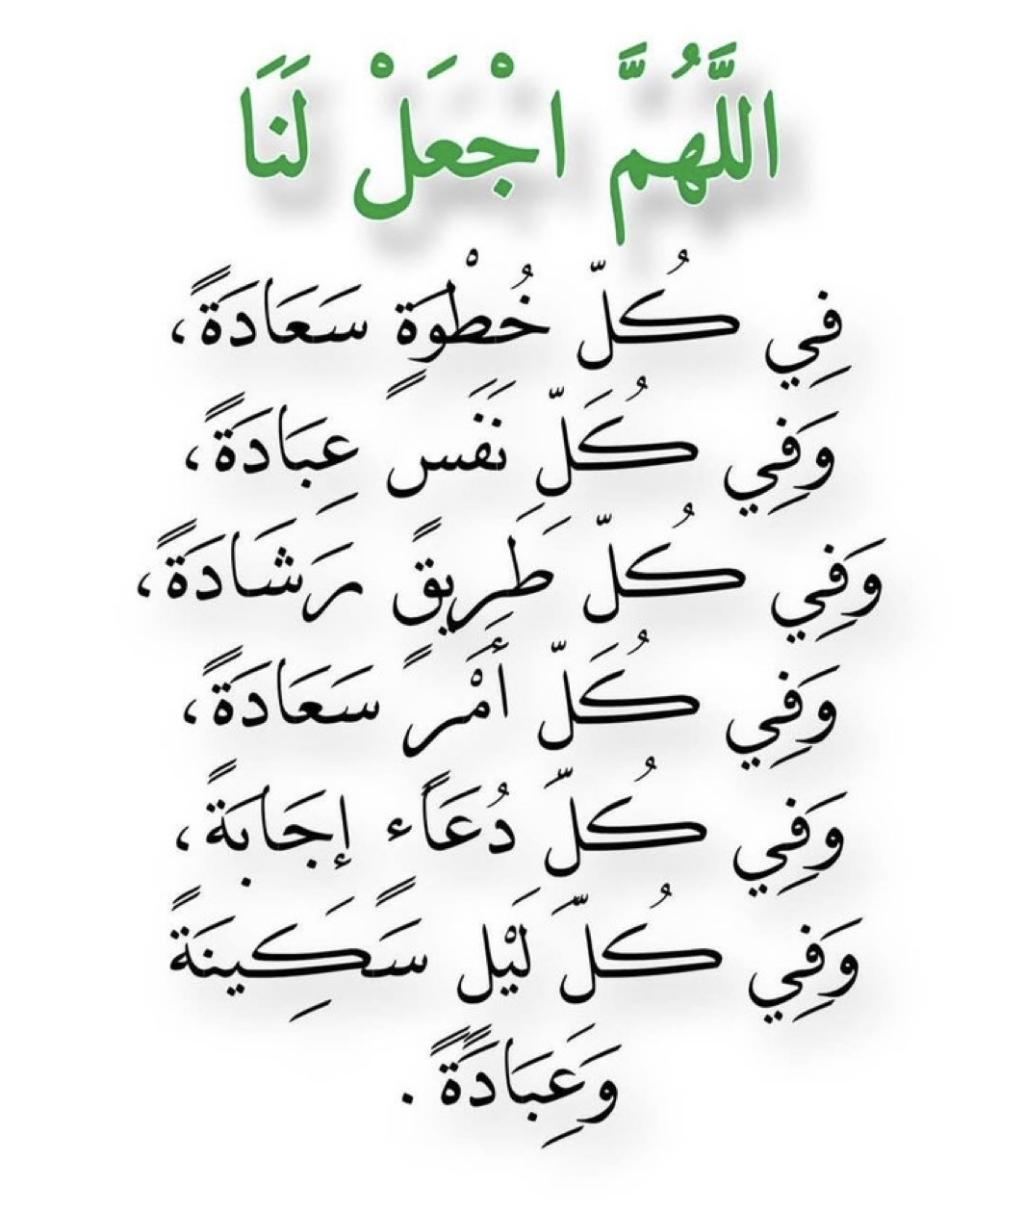 اللَّهُمَّ اجْعَلْ لَنَا
فِي كُلّ خُطْوَةٍ سَعَادَةً،
وَفِي كُلِّ نَفَسٍ عِبَادَةً،
وَفِي كُلّ طَرِيقٍ رَشَادَةً،
وَفِي كُلّ أَمْرٍ سَعَادَةً،
وَفِي كُلّ دُعَاء إجَابَةً،
وَفِي كُلّ لَيْل سَكِينَةً
وَعِبَادَةً .